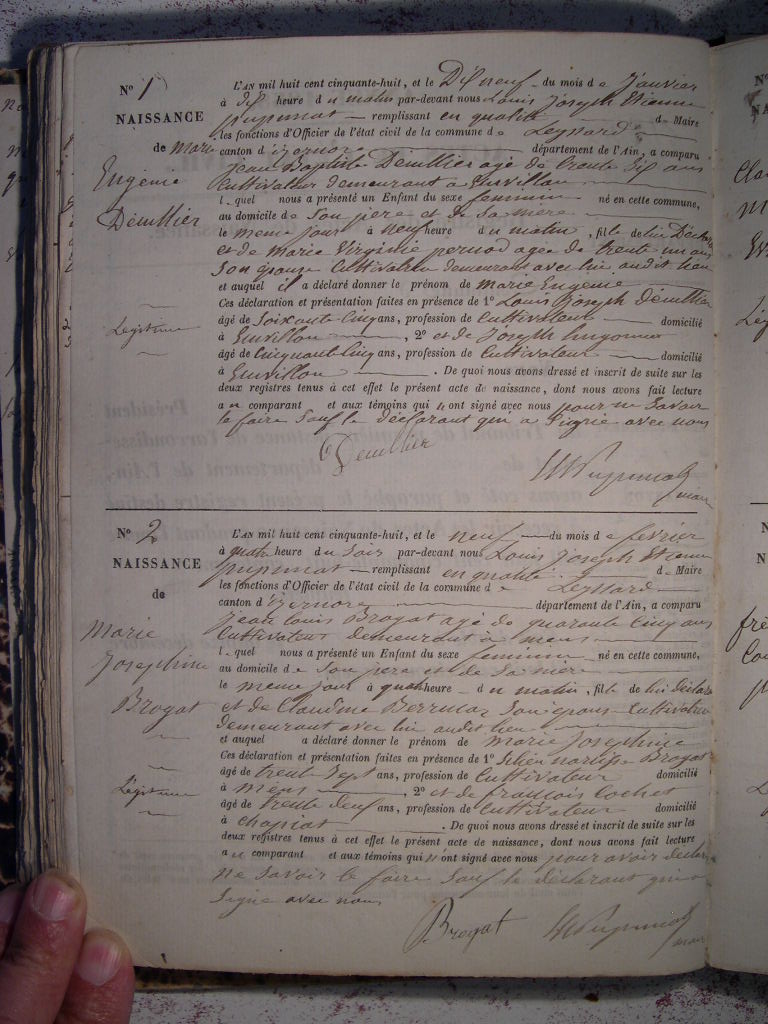 N° 1
NAISSANCE
de Marie
Eugénie
Démillier
Légitime
L'AN mil huit cent cinquante-huit, et le Dix neuf du mois de Janvier
à dix heure du matin par-devant nous Louis Joseph Etienne
remplissant en qualité de Maire
les fonctions d'Officier de l'état civil de la commune de Leyssard
canton d'izernore département de l'Ain, a comparu
jean Baptiste agé de trente six ans
Cultivateur demeurant a
lequel nous a présenté un Enfant du sexe feminin né en cette commune,
au domicile de Son père et de Sa mère
le meme jour à neuf heure du matin, fille de lui Déclarant
et de marie Virginie pernod agée de trente un ans
Son epouse Cultivateur demeurant avec lui audit lieu
et auquel il a déclaré donner le prénom de marie Eugenie
Ces déclaration et présentation faites en présence de 1° Louis Joseph
âgé de Soixante Cinq ans, profession de Cultivateur domicilié
à , 2° et de Joseph hugonnet
âgé de Cinquante Cinq ans, profession de Cultivateur domicilié
à . De quoi nous avons dressé et inscrit de suite sur les
deux registres tenus à cet effet le présent acte de naissance, dont nous avons fait lecture
au comparant et aux témoins qui n'ont signé avec nous pour ne Savoir
le faire Sauf le déclarant qui a Signé avec nous
maire
N° 2
NAISSANCE
de
Marie
Josephine
Brogat
Légitime
L'AN mil huit cent cinquante-huit, et le neuf du mois de fevrier
à quatre heure du Soir par-devant nous Louis Joseph Etienne
remplissant en qualité de Maire
les fonctions d'Officier de l'état civil de la commune de Leyssard
canton d'izernore département de l'Ain, a comparu
jean Louis Brogat agé de quarante Cinq ans
Cultivateur demeurant a mens
lequel nous a présenté un Enfant du sexe feminin né en cette commune,
au domicile de Son père et de Sa mère
le meme jour à quatre heure du matin, fille de lui déclarant
et de Claudine Son epouse Cultivateur
demeurant avec lui audit lieu
et auquel a déclaré donner le prénom de marie Josephine
Ces déclaration et présentation faites en présence de 1° Brogat
âgé de trente Sept ans, profession de Cultivateur domicilié
à mens , 2° et de francois Cochet
âgé de trente neuf ans, profession de Cultivateur domicilié
à chapiat . De quoi nous avons dressé et inscrit de suite sur les
deux registres tenus à cet effet le présent acte de naissance, dont nous avons fait lecture
au comparant et aux témoins qui n'ont signé avec nous pour avoir déclaré
ne Savoir le faire Sauf le déclarant qui a
Signe avec nous
Brogat
maire